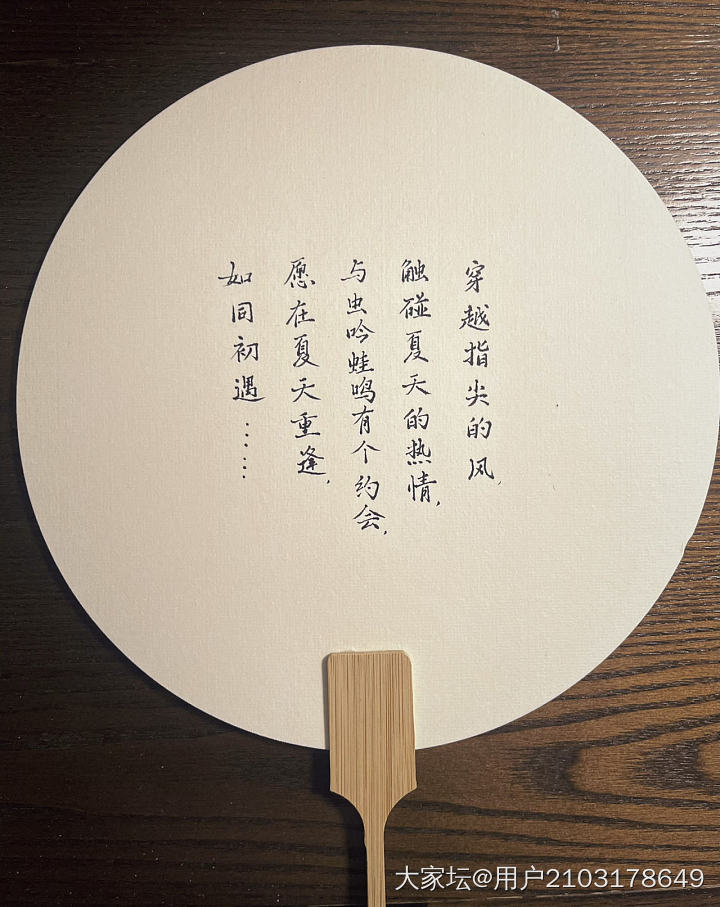 穿越指尖的风,
触碰夏天的热情,
与虫吟蛙鸣有个约会,
愿在夏天重逢,
如同初遇……
大家坛@用户2103178649